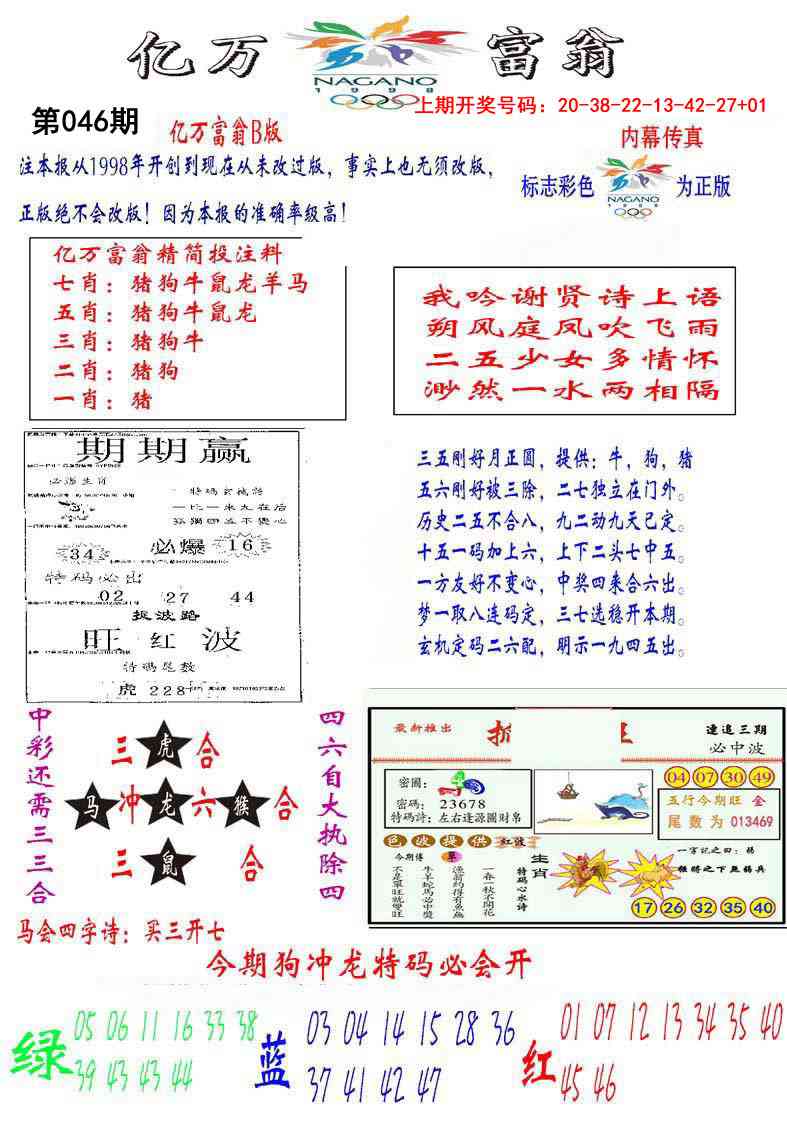 亿万
富翁
NAGANO
1998
上期开奖号码：20-38-22-13-42-27+01
第046期
亿万富翁B版
内幕传真
注本报从1998年开创到现在从未改过版，事实上也无须改版，
正版绝不会改版！因为本报的准确率级高！
标志彩色
NAGANO
1998
为正版
亿万富翁精简投注料
七肖：猪狗牛鼠龙羊马
五肖：猪狗牛鼠龙
三肖：猪狗牛
二肖：猪狗
一肖：猪
我吟谢贤诗上语
朔风庭凤吹飞雨
二五少女多情怀
渺然一水两相隔
期期赢
必爆
34
16
特码必出
02 27 44
捉波路
旺红波
特码尾数
虎 228
三五刚好月正圆，提供：牛，狗，猪
五六刚好被三除，二七独立在门外。
历史二五不合八，九二动九天已定。
十五一码加上六，上下二头七中五。
一方友好不变心，中奖四来合六出。
梦一取八连码定，三七选稳开本期。
玄机定码二六配，明示一九四五出。
中彩还需三三合
三虎合
马冲龙六猴合
三鼠合
四六自大执除四
最新推出
连追三期
必中波
密圖：
密碼：23678
特碼詩：左右逢源圖财帛
04 07 30 49
五行今期旺 金
尾数为 013469
色波提供 红波
今期傳
不是單旺就雙旺
牛羊蛇馬必中獎
漁翁約得有魚無
一春一秋不開花
特码心水诗
生肖
17 26 32 35 40
马会四字诗：买三开七
今期狗冲龙特码必会开
绿
05 06 11 16 33 38
39 43 43 44
蓝
03 04 14 15 28 36
37 41 42 47
红
01 07 12 13 34 35 40
45 46